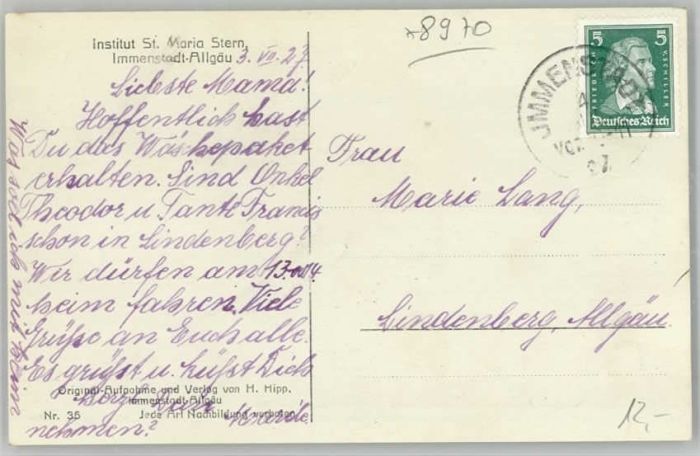 *8970
Institut St. Maria Stern,
Immenstadt-Allgäu
3. VII. 27
Liebste Mama!
Hoffentlich hast
Du das Wäschepaket
erhalten. Sind Onkel
Theodor u. Tante Francis
schon in Lindenberg?
Wir dürfen am 13. od. 14.
heim fahren. Viele
Grüße an Euch alle.
Es grüßt u. küßt Dich
herzlich
Original-Aufnahme und Verlag von H. Hipp.
Immenstadt-Allgäu
Nr. 36 Jede Art Nachbildung verboten.
Was soll ich mit heim
nehmen?
Frau
Marie Lang,
Lindenberg, Allgäu
5 5
FRIEDRICH
V. SCHILLER
Deutsches Reich
IMMENSTADT
12,-